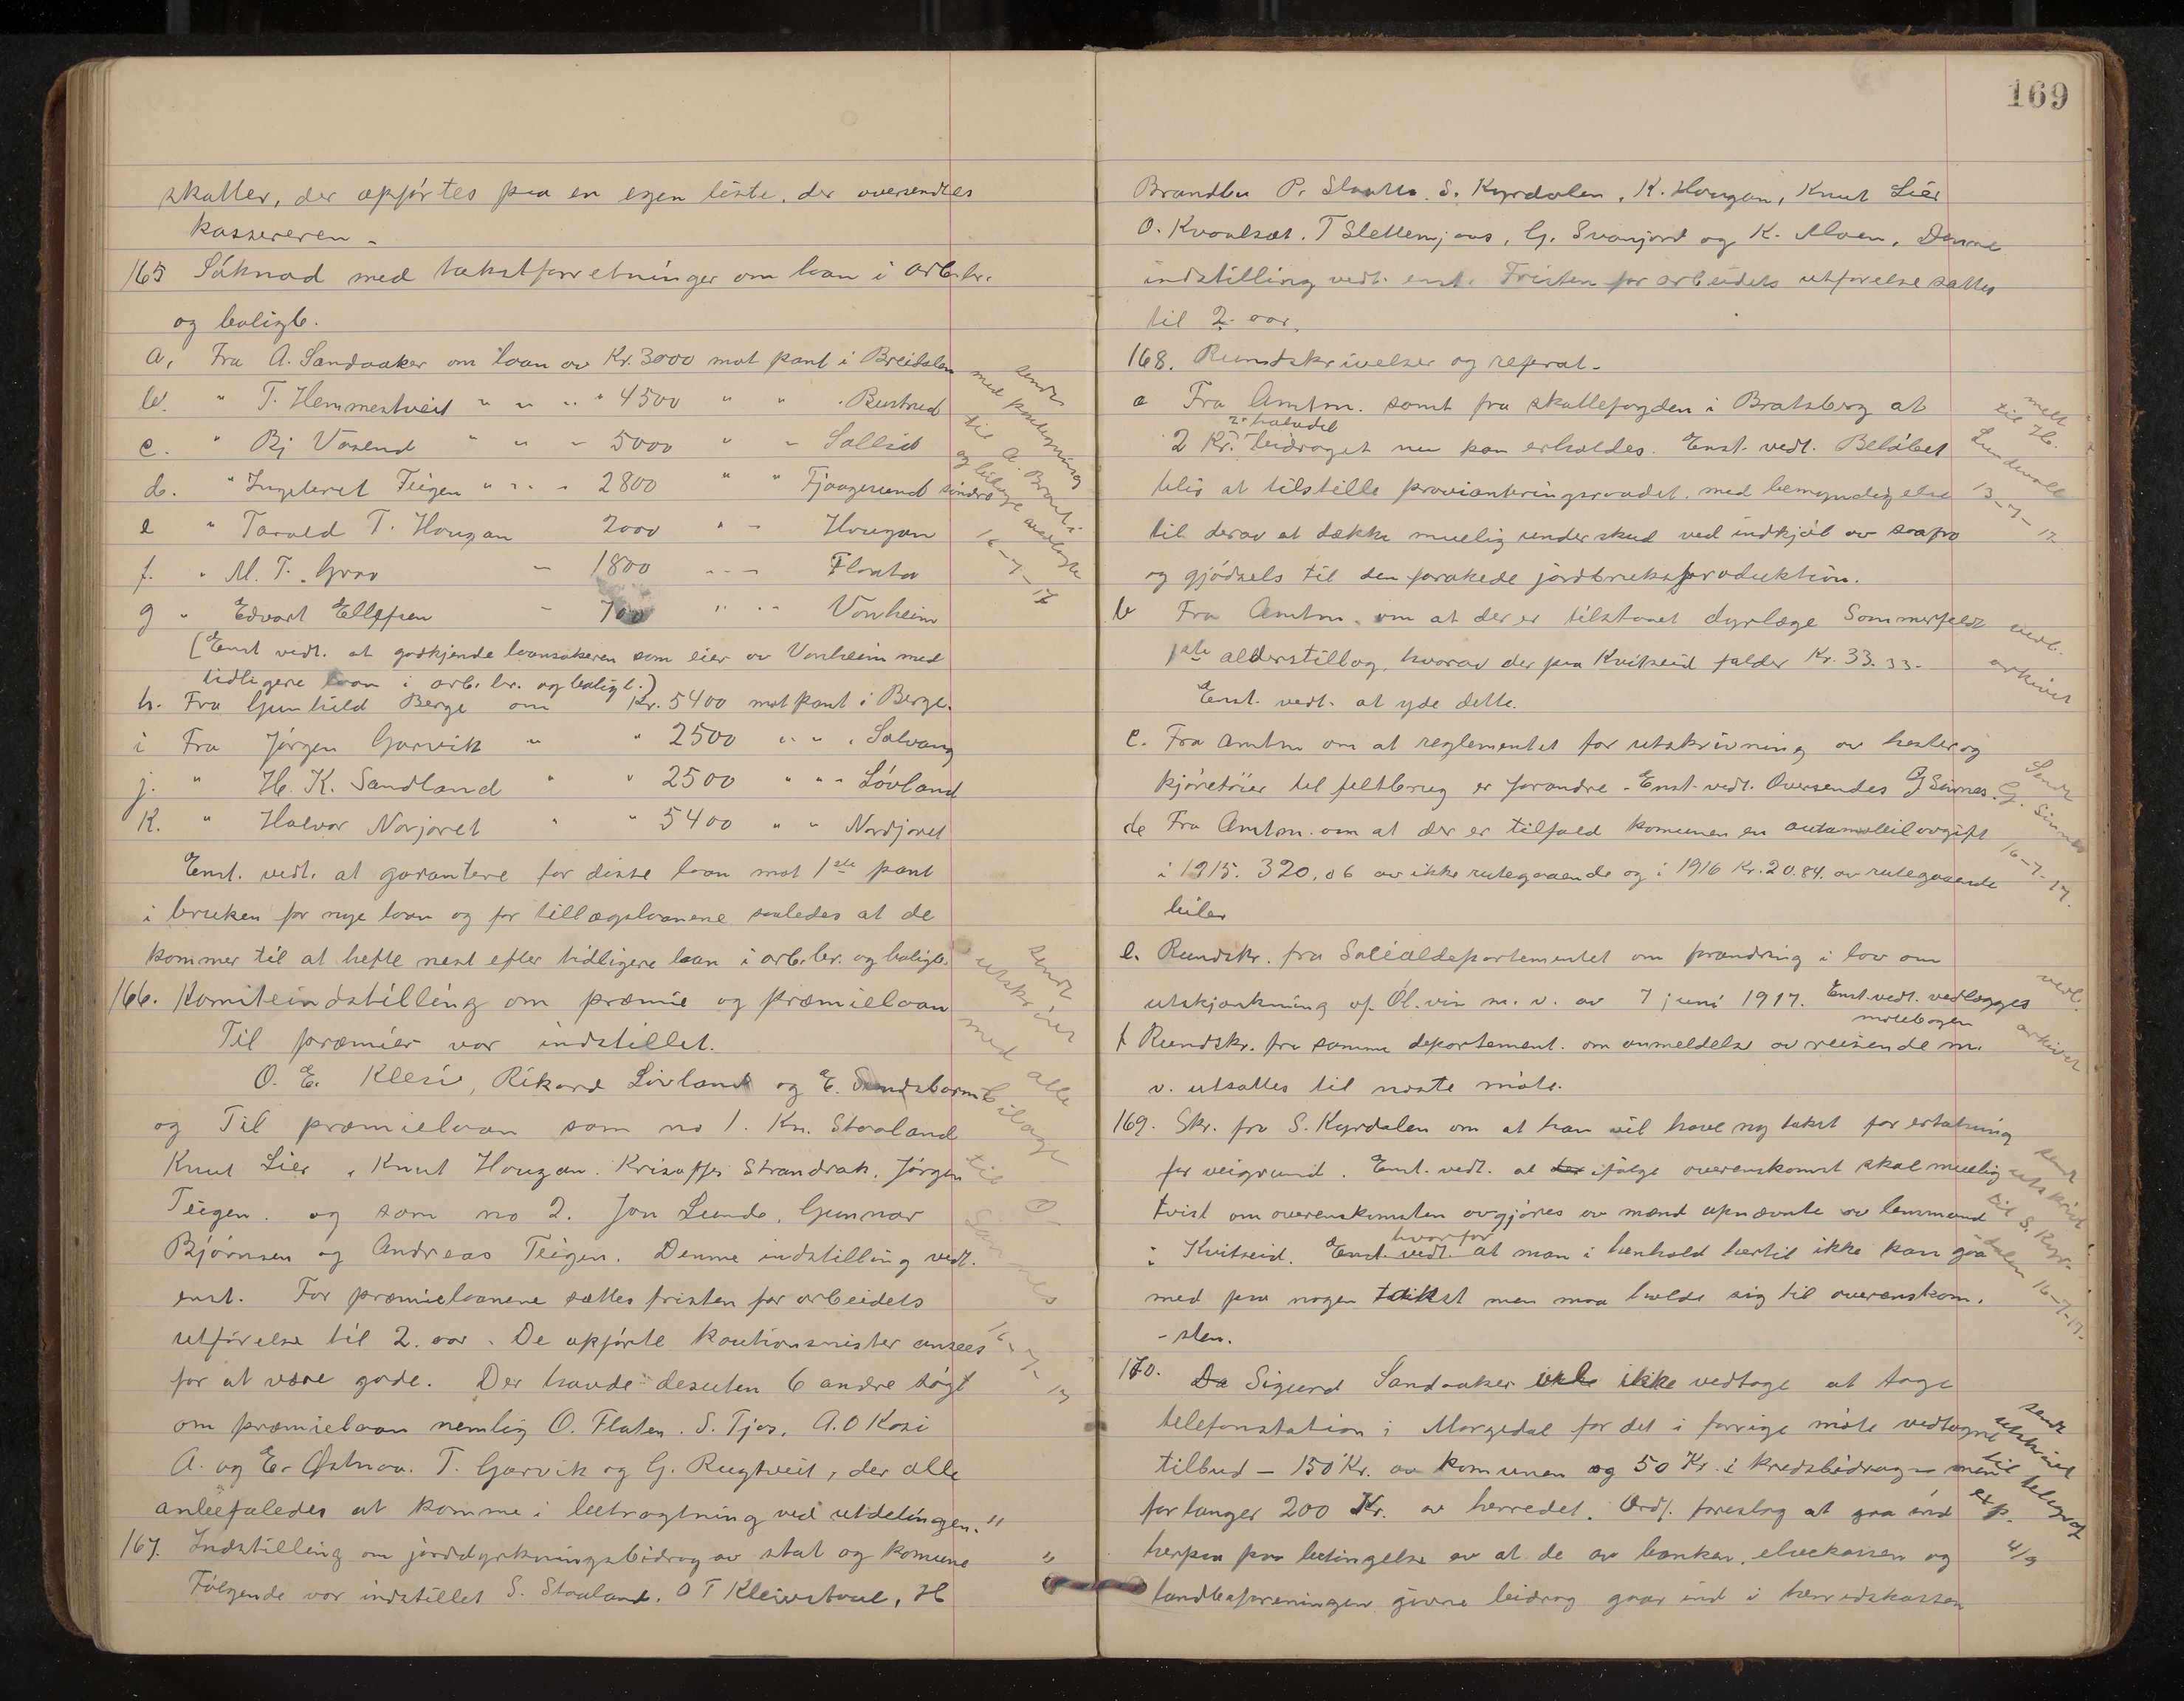 skatter, der opførtes paa en egen liste, der oversendtes
kassereren -
165 Søknad med takstforretninger om laan i arb.br.
og boligb.
a, Fra A. Sandaaker om laan av Kr. 3000 mot pant i Breidalen
b. " T. Hemmestveit " " " " 4500 " " " Bustrud
c. " Bj Vaaend " " - 5000 " - Sollid
d. " Ingeleret Teigen " " " - 2800 " " Fjaagesund søndre
e " Tarald T. Hougan 2000 " - Hougan
f. " M. T. Grav - 1800 - - - Flaata
g " Edvart Ellefsen - 700 " " - Vonheim
(Enst vedt. at godkjende laansøkeren som eier av Vonheim med
tidligere laan i arb. br. og boligb.)
h. Fra Gunhild Berge om Kr. 5400 mot pant i Berge.
i Fra Jørgen Garvik " " 2500 " " " Solvang
j. " H. K. Sandland " " 2500 " " " Løvland
K. " Halvor Norjoret " " 5400 " " Nordjoret
Enst. vedt. at garantere for disse laan mot 1ste pant
i bruken for nye laan og for tillægslaanene saaledes at de
kommer til at hefte nest efter tidligere laan i arb.br. og boligb.
sendt
med paategning
til A. Brant.
og bilage vedlagte
16-7-17
166. Komiteindstilling om præmie og præmielaan
Til præmier var indstillet.
O. E. Klesi, Rikard Lövland og E. Sundsbarm
og Til præmielaan som no 1. Kn. Staaland
Knut Lier, Knut Hougan. Kristoffer Strandrak, Jørgen
Teigen. og som no 2. Jon Lunde, Gunnar
Bjørnsen og Andreas Teigen. Denne indstilling vedt.
enst. For præmielaanene sættes fristen for arbeidets
utførelse til 2. aar. De opførte kautionsmister ansees
for at være gode. Der havde desuten 6 andre søgt
om præmielaan nemlig O. Flaten. S. Tjos, A. O Kasi
A. og E. Østmoa. T. Garvik og G. Rugtveit, der alle
anbefaledes at komme i betragtning ved utdelingen. "
sendt
utskrivt
med alle
bilage
til O.
Sønnes
16-7-17
167. Indstilling om jorddyrkningsbidrag av stat og komune "
Følgende var indstillet S. Staaland. O T Kleivstaul, H
169
Brandbu P. Slaatta. S. Kyrdalen, K. Hougan, Knut Lier
O. Kvaalsæt. T Slettemjaas, G. Svanjord og K. Moen, Denne
indstilling vedt. enst. Fristen for arbeidets utførelse sættes
til 2 aar.
168. Rundskrivelser og referat.
a Fra Amtm. samt fra skattefogden i Bratsberg at
2. halvdel
2 Kr. bidraget nu kan erholdes. Enst. vedt. Beløbet
blir at tilstille provianteringsraadet med bemyndigelse
til derav at dække muelig underskud ved indkjøb av saafrø
og gjødsels til den forøkede jordbruksproduktion.
melt
til H.
Lundevall
13-7-17
b Fra Amtm. om at der er tilstaaet dyrlæge Sommerfeldt
1ste alderstillæg, hvorav der paa Kviteseid falder Kr. 33.33-
Enst. vedt. at yde dette.
vedl.
arkivet
c. Fra Amtm om at reglementet for utskrivning av hester og
kjøretöier til feltbrug er forandre - Enst. vedt. Oversendes G Sinnes.
Sendt
G. Sinnes
16-7-17.
d. Fra Amtm. om at der er tilfald komunen en automobilavgift
i 1915. 320,06 av ikke rutegaaende og i 1916 Kr. 20.84. av rutegaaende
biler
e. Rundskr. fra Socialdepartementet om forandring i lov om
utskjænkning af Øl. vin m. v. av 7 juni 1917. Enst. vedt. vedlægges
møtebogen
vedl.
arkivet
f Rundskr. fra samme departement. om anmeldelse av reisende m.
v. utsættes til næste møte.
169. Skr. fra S. Kyrdalen om at han vil have ny takst for erstatning
for veigrund. Enst. vedt. at der ifølge overenskomst skal muelig
tvist om overenskomsten avgjøres av mænd opnævnte av lensmand
hvorfor
i Kviteseid. Enst. vedt. at man i henhold hertil ikke kan gaa
med paa nogen takst men maa holde sig til overenskom.
- sten.
sendt
utskrivt
til S. Kyr-
dalen 16-7-17.
170. Da Sigurd Sandaaker ikke ikke vedtoge at tage
telefonstation i Morgedal for det i forrige møte vedtagne
tilbud - 150 Kr. av komunen og 50 Kr. i kredsbidrag - men
forlanger 200 Kr. av herredet. Ordf. foreslog at gaa ind
herpaa paa betingelse av at de av banken, elvekassen og
landboforeningen givne bidrag gaar ind i herredskassen
sendt
utskrivt
til telegraf
exp.
4/9